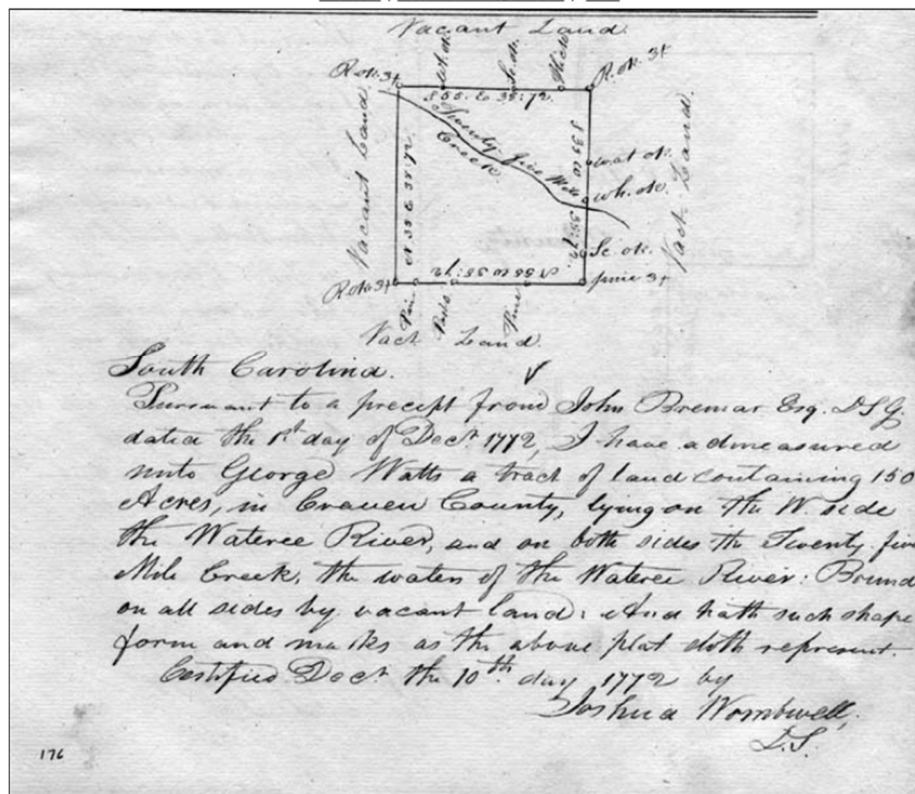 Vacant Land.
R. ok. 3x
Wh. ok.
Sc. ok.
Hick
R. ok. 3x
S 55. E 38:72.
Vacant Land
N 35 E 38:72
Twenty five Mile
Creek.
S 35 W 38:72.
wat ok.
Wh. ok.
Sc. ok.
Vact Land
R. ok. 3x
N 55 W 38:72
pine 3x
Pine
Pine
Vact Land.
South Carolina.
Pursuant to a precept from John Bremar Esq. D S G.
dated the 1st day of Decr. 1772, I have admeasured
unto George Watts a tract of land containing 150
Acres, in Craven County, lying on the W. side
the Wateree River, and on both sides the Twenty five
Mile Creek, the waters of the Wateree River: Bound
on all sides by vacant land: And hath such shape
form and marks as the above plat doth represent.
Certified Decr. the 10th day 1772 by
Joshua Wombwell,
D.S.
176